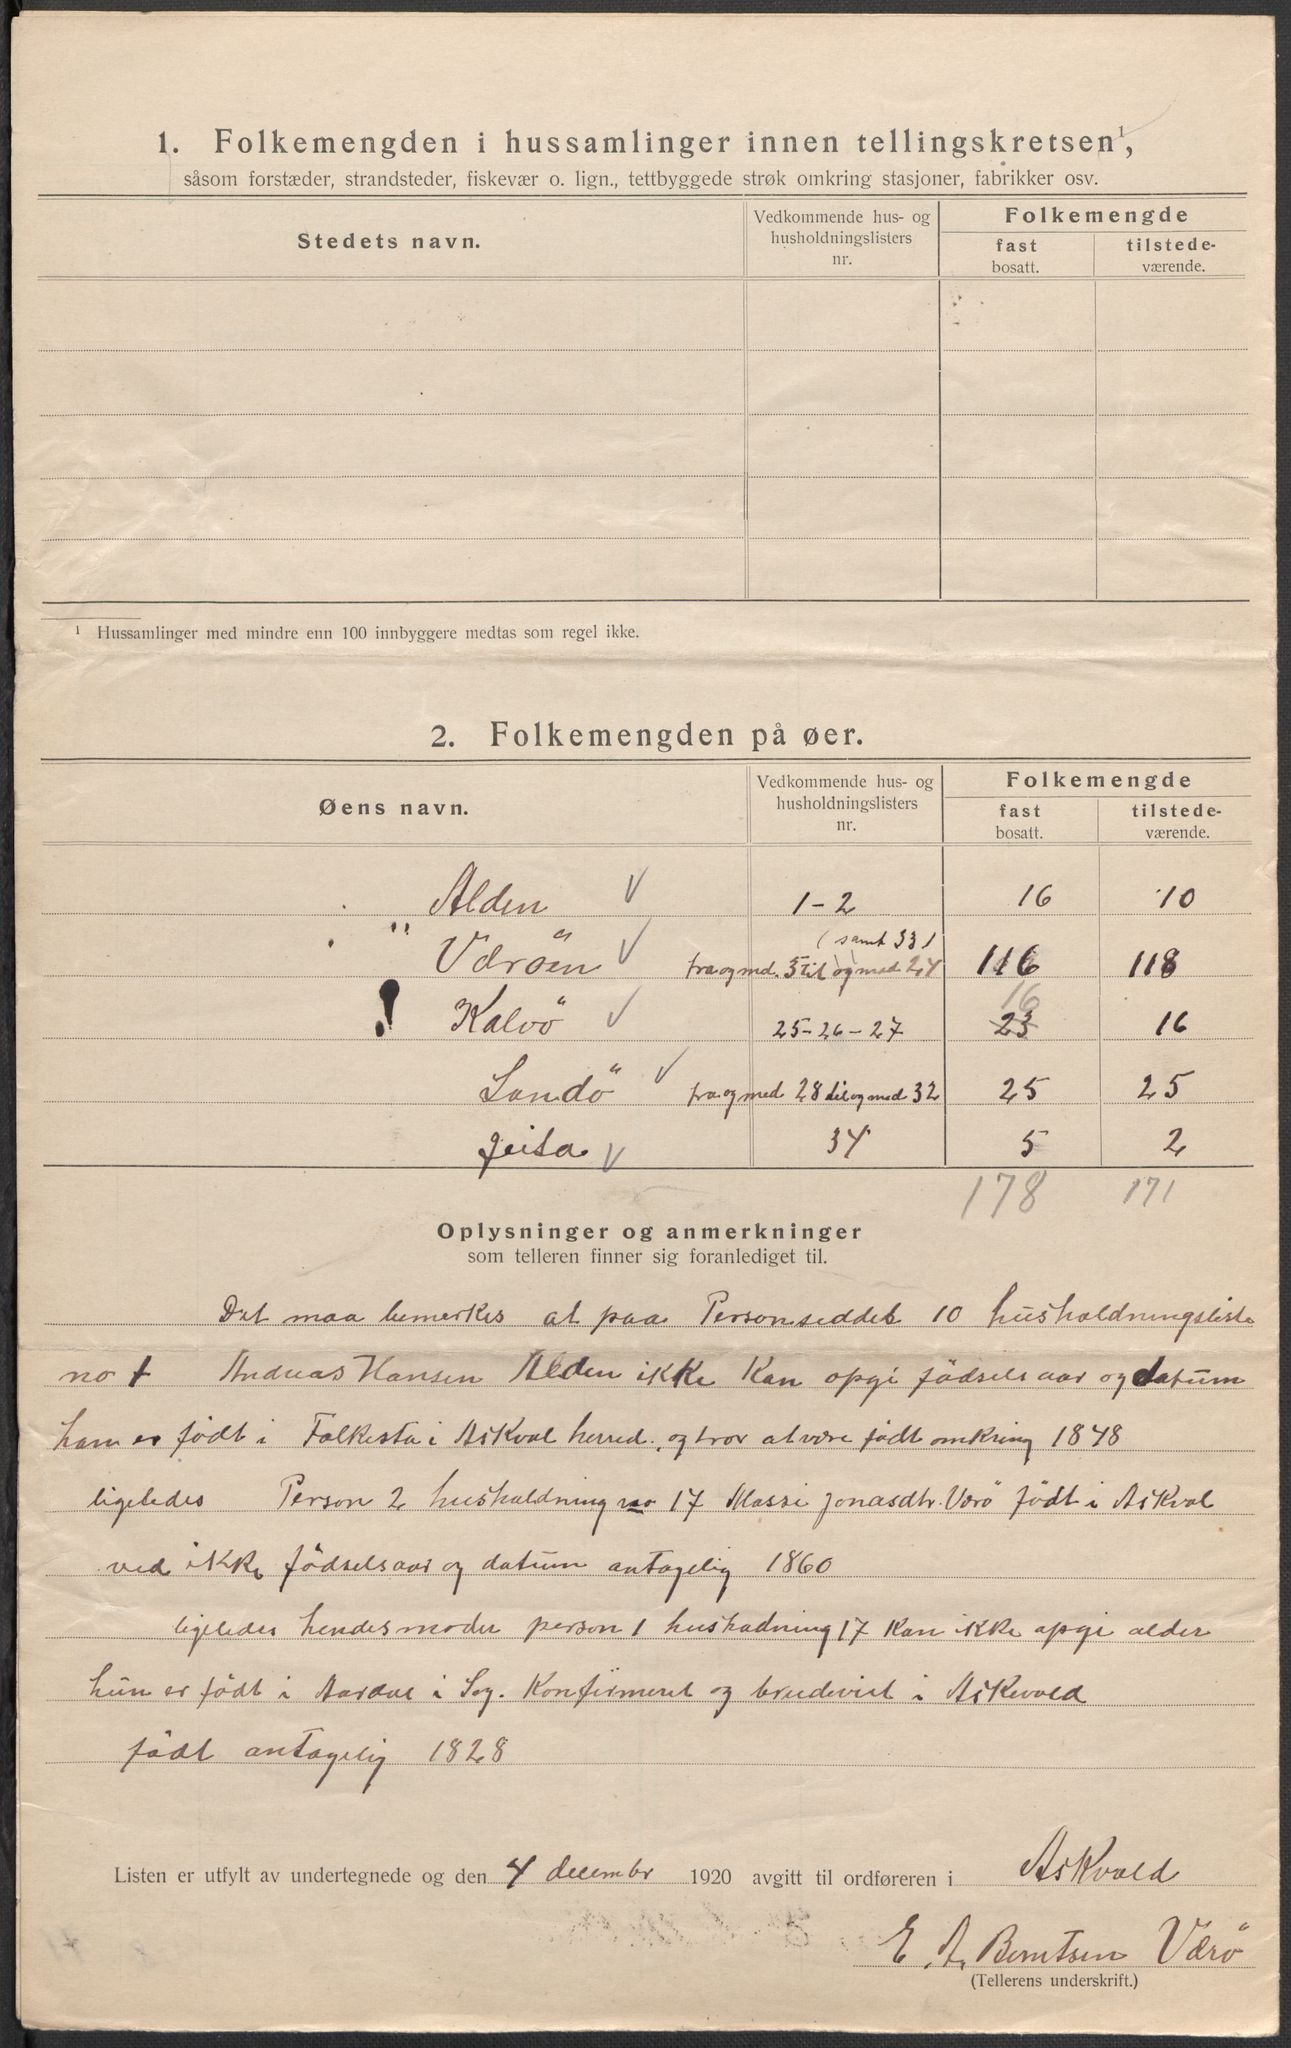 1. Folkemengden i hussamlinger innen tellingskretsen¹,
såsom forstæder, strandsteder, fiskevær o. lign., tettbyggede strøk omkring stasjoner, fabrikker osv.
Stedets navn.
Vedkommende hus- og husholdningslisters nr.
Folkemengde
fast bosatt.
tilstede-værende.
¹ Hussamlinger med mindre enn 100 innbyggere medtas som regel ikke.
2. Folkemengden på øer.
Øens navn.
Vedkommende hus- og husholdningslisters nr.
Folkemengde
fast bosatt.
tilstede-værende.
Alden V 1-2 16 10
(samt 33)
" Væröen V fra og med 3 til og med 24 116 118
16
! Kalvö V 25-26-27 23 16
Sandö V fra og med 28 til og med 32 25 25
Jeita V 34 5 2
178 171
Oplysninger og anmerkninger
som telleren finner sig foranlediget til.
Det maa bemerkes at paa Personseddel 10 husholdningsliste
no 1 Andreas Hansen Alden ikke kan opgi födsels aar og datum
han er født i Folkesta i Askval herred. og tror at være født omkring 1848
ligeledes Person 2 husholdning no 17 Massi Jonasdtr. Værö födt i Askvol
ved ikke födselsaar og datum antagelig 1860
ligeledes hendes moder person 1 hushadning 17 kan ikke opgi alder
hun er födt i Aardal i Sog. Konfirmeret og brudeviet i Askevold
født antagelig 1828
Listen er utfylt av undertegnede og den 4 decembr 1920 avgitt til ordføreren i Askvold
E. A. Berntsen Værö
(Tellerens underskrift.)